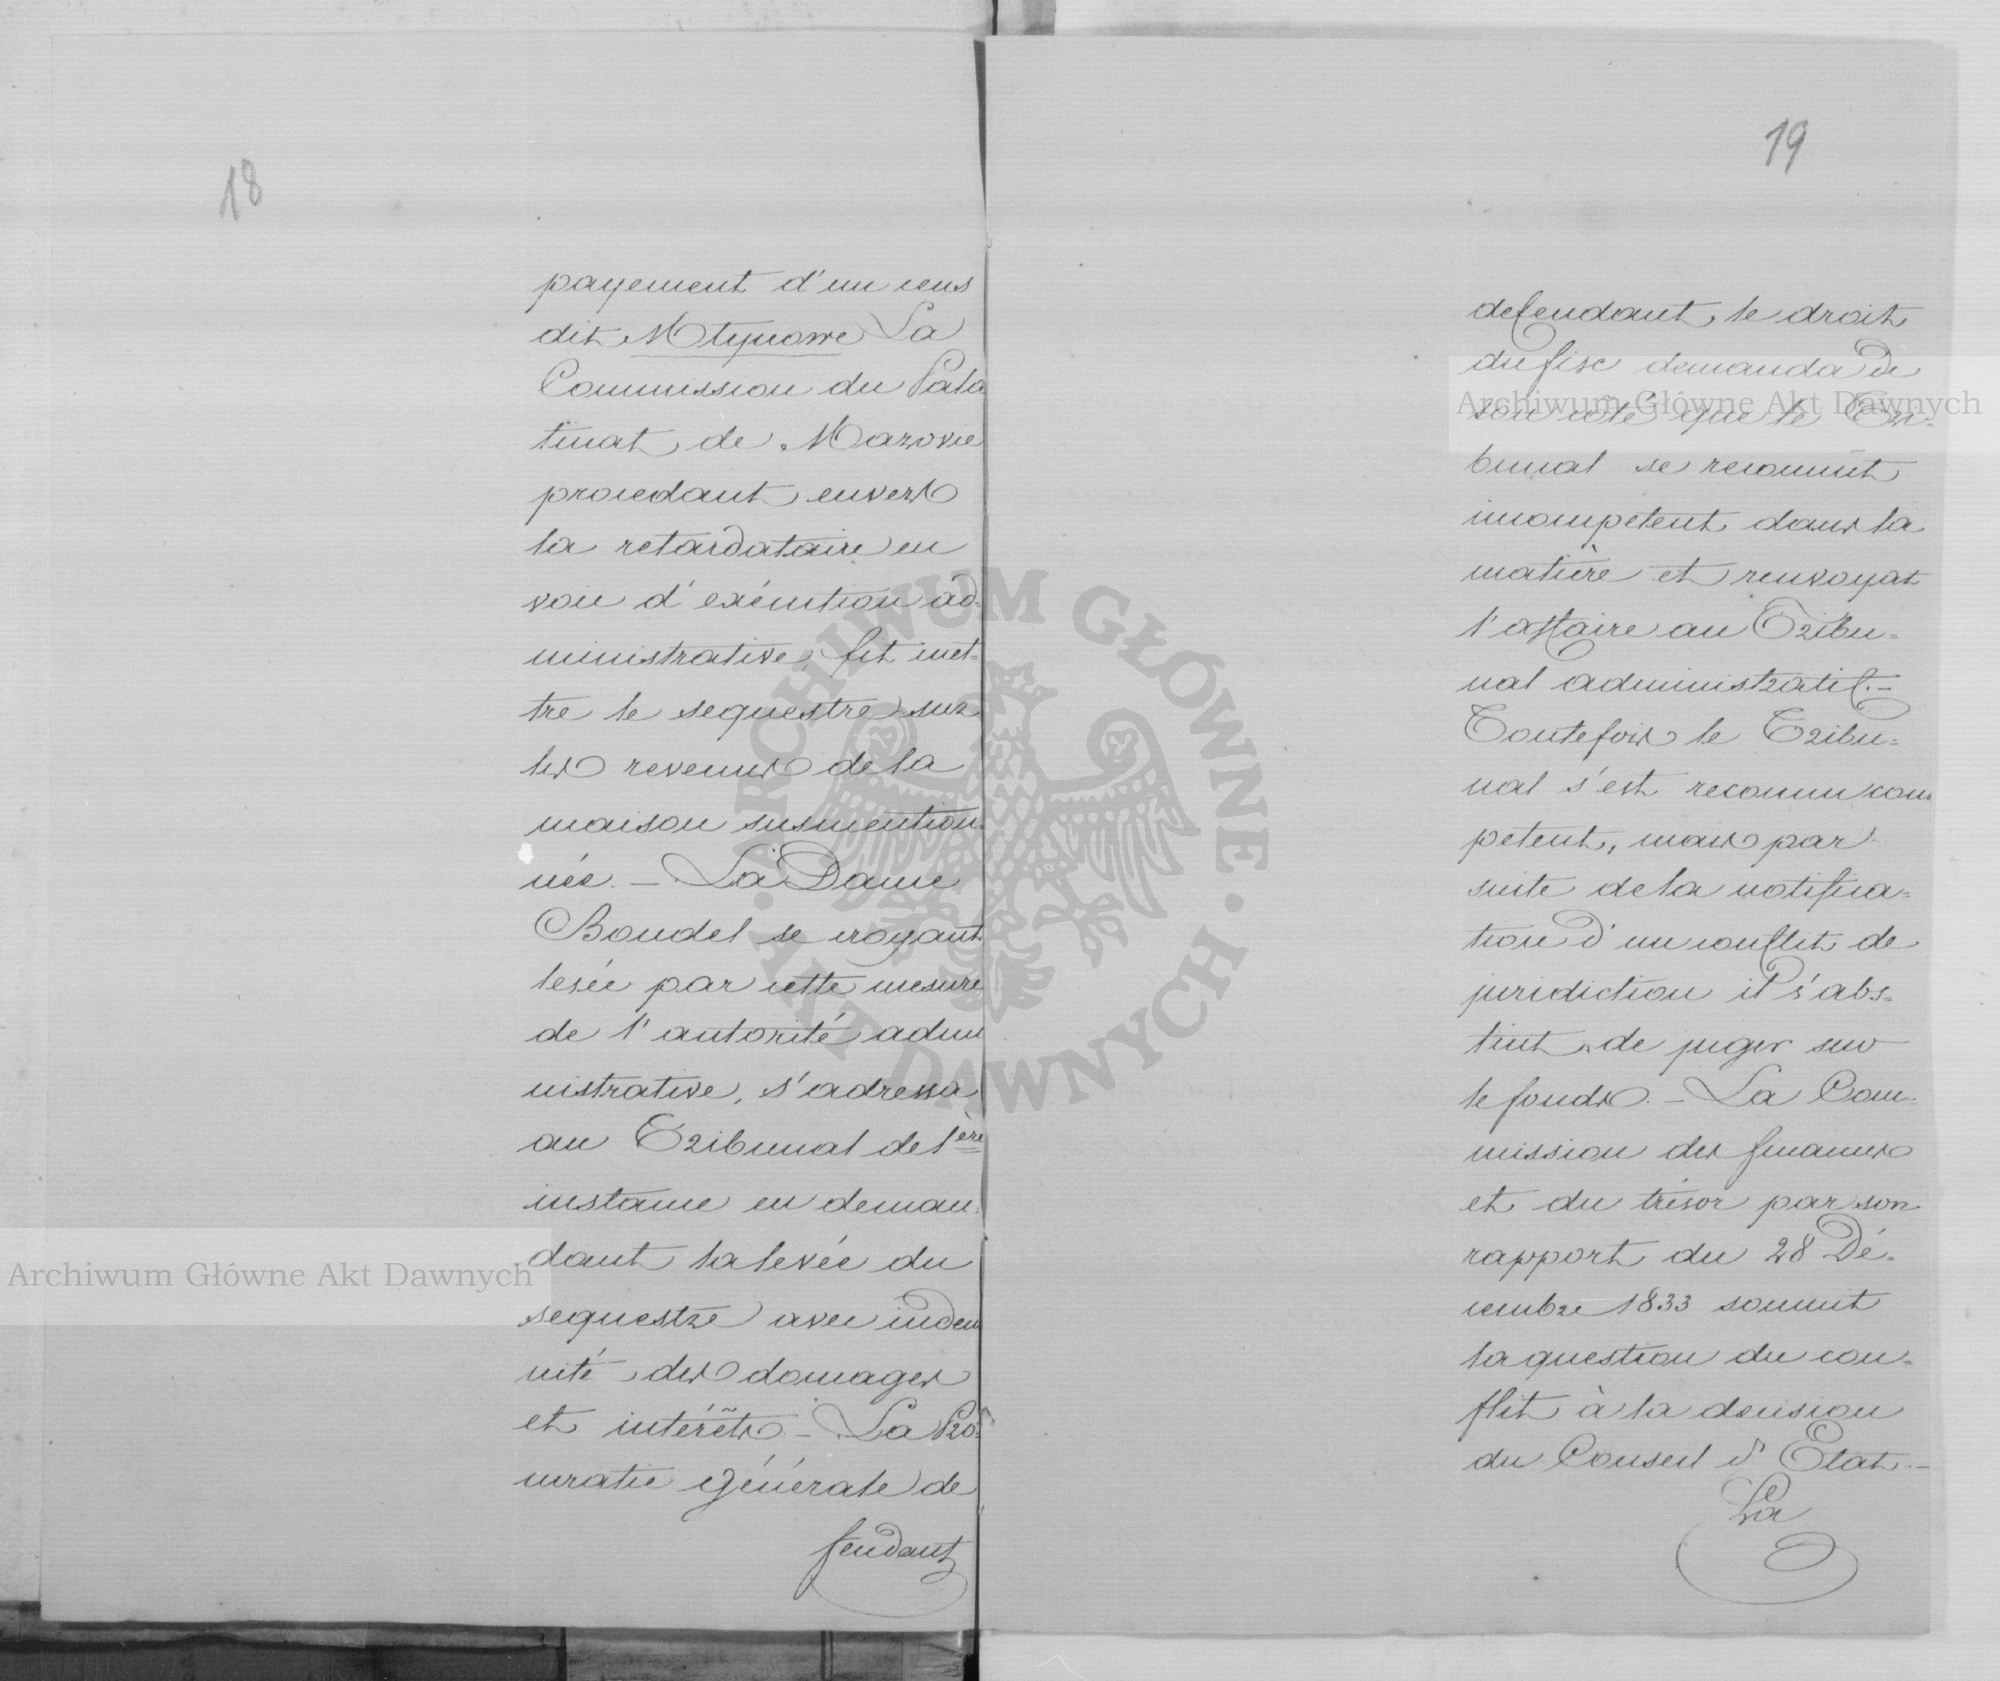 18
payement d'un cens
dit Młynowe La
Commission du Pala
tinat de Mazovie
procedant envers
la retardataire en
voie d'exécution ad-
ministrative, fit met-
tre le sequestre sur
les revenus de la
maison susmention-
née. - La Dame
Boudel se croyant
lesée par cette mesure
de l'autorité admi
nistrative, s'adressa
au Tribunal de 1ère
instance en deman-
dant la levée du
sequestre avec indem
nité des domages
et intérêts. - La Pro-
curatie générale de
fendant
19
defendant le droit
du fisc demanda de
son côté que le Tri-
bunal se reconnût
incompetent dans la
matière et renvoyat
l'affaire au Tribu-
nal administratif.-
Toutefois le Tribu-
nal s'est reconnu com
petent, mais par
suite de la notifica-
tion d'un conflit de
juridiction il s'abs-
tint de juger sur
le fonds. - La Com-
mission des finances
et du trésor par son
rapport du 28 Dé-
cembre 1833 soumit
la question du con-
flit à la decision
du Conseil d'Etat.-
La
Archiwum Główne Akt Dawnych
Archiwum Główne Akt Dawnych
ARCHIWUM GŁÓWNE
AKT DAWNYCH